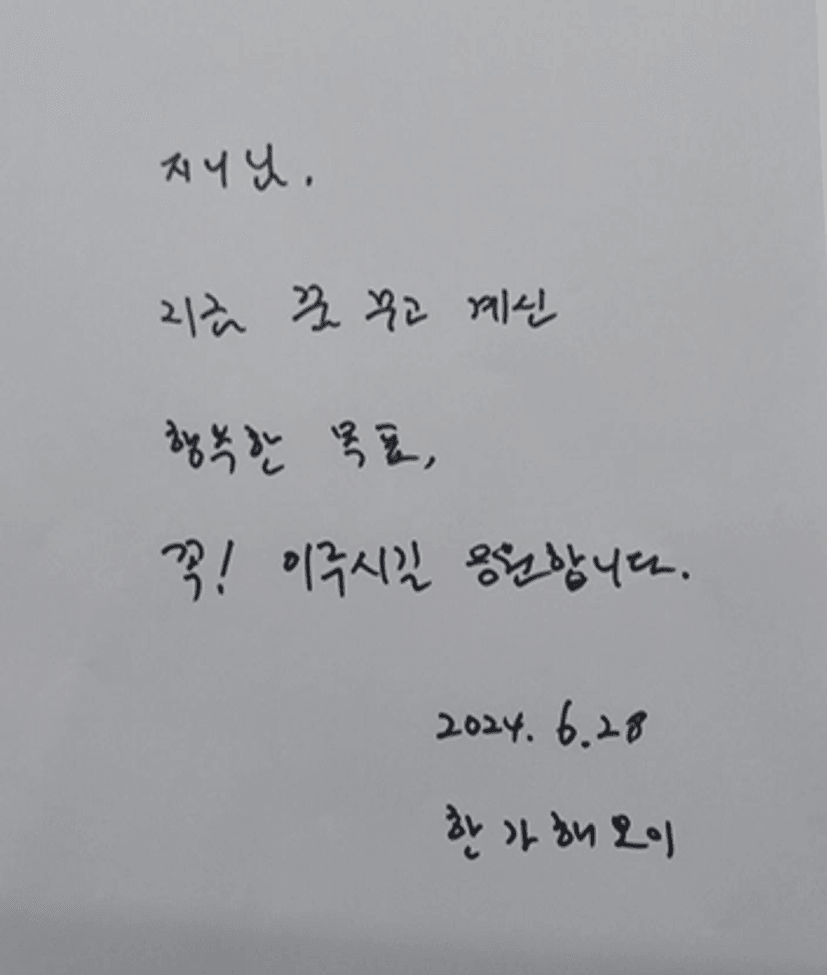 지니님.
지금 꿈 꾸고 계신
행복한 목표,
꼭! 이루시길 응원합니다.
2024. 6. 28
한가해 오이